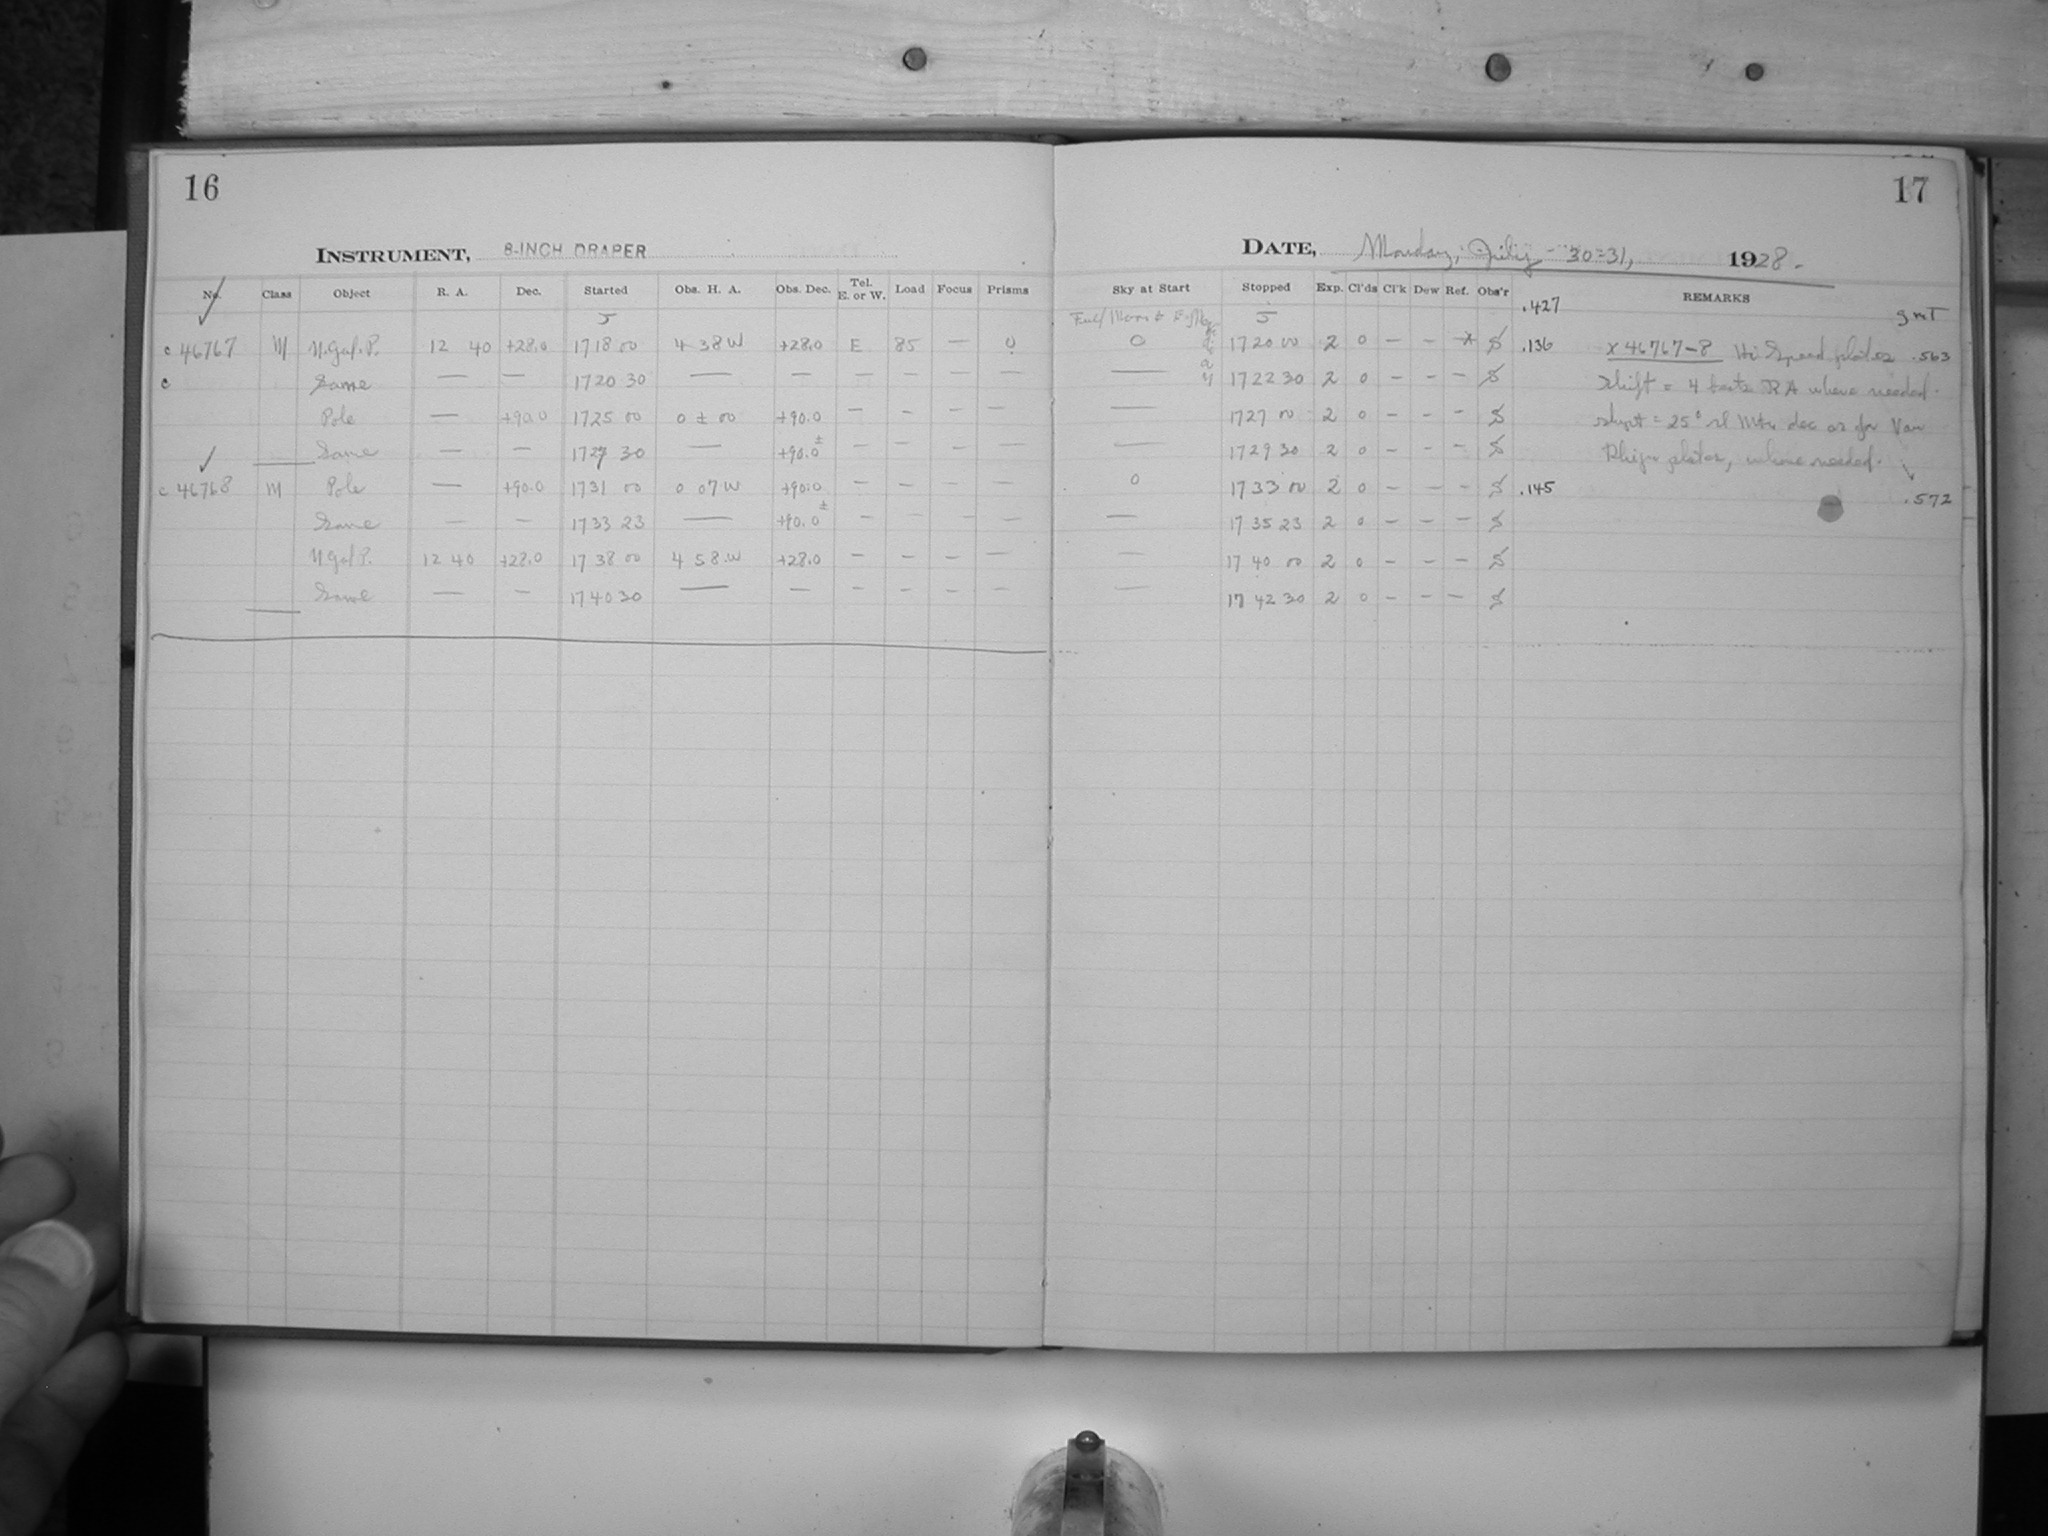 16
INSTRUMENT, 8-INCH DRAPER
No. Class Object R. A. Dec. Started Obs. H. A. Obs. Dec. Tel. E. or W. Load Focus Prisms
c 46767 M N. Gal. P. 12 40 +28.0 17 18 00 4 38 W +28.0 E 85 — 0
c Same — — 17 20 30 — — — — — —
Pole — +90.0 17 25 00 0 ± 00 +90.0 — — — —
Same — — 17 27 30 — +90.0 ± — — — —
c 46768 M Pole — +90.0 17 31 00 0 07 W +90.0 — — — —
Same — — 17 33 23 — +90.0 ± — — — —
N Gal P. 12 40 +28.0 17 38 00 4 58 W +28.0 — — — —
Same — — 17 40 30 — — — — — —
17
DATE, Monday, July 30-31, 1928.
Sky at Start Stopped Exp. Cl'ds Cl'k Dew Ref. Obs'r .427 REMARKS GMT
Full Moon
0 17 20 00 2 0 — — * S .136 x 46767-8 Hi Speed plates .563
— 17 22 30 2 0 — — — S Shift = 4 beats RA where needed.
— 17 27 00 2 0 — — — S Shift = 25° of Mtr dec as for Van
— 17 29 30 2 0 — — — S Rhijn plates, where needed.
0 17 33 00 2 0 — — — S .145 .572
— 17 35 23 2 0 — — — S
— 17 40 00 2 0 — — — S
— 17 42 30 2 0 — — — S